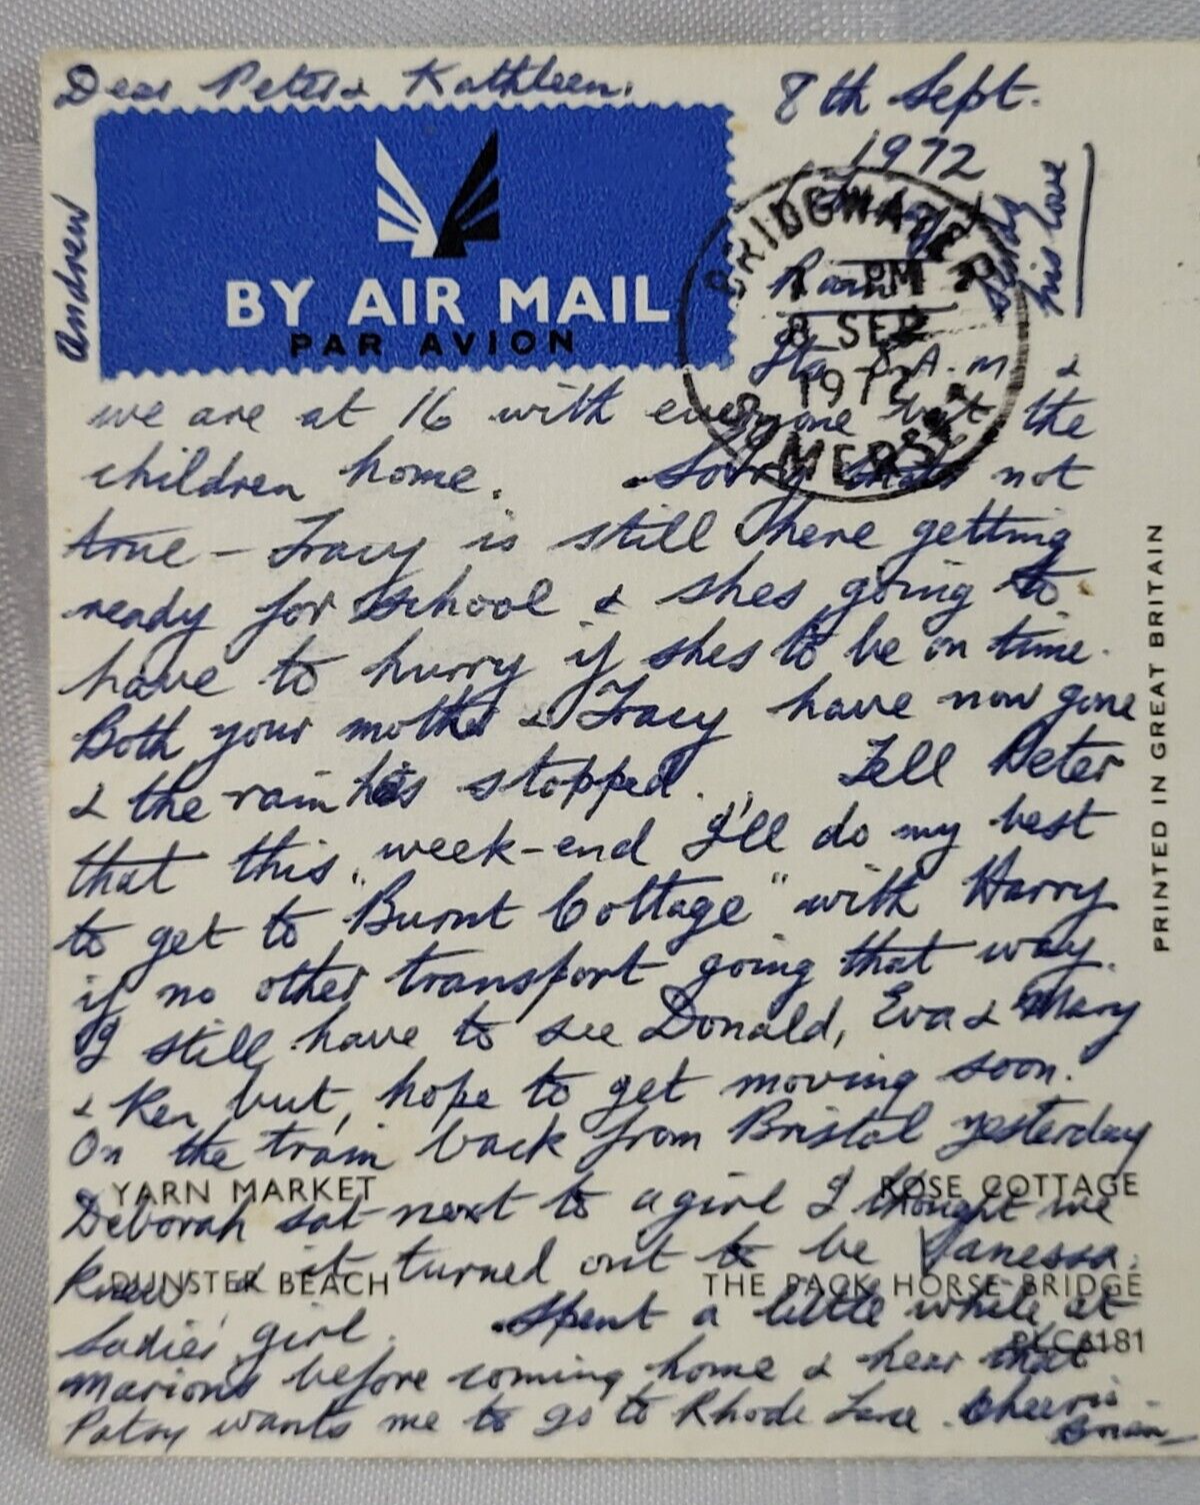 Dear Peter & Kathleen.
8th Sept.
1972
Andrew
sends
his love
BY AIR MAIL
PAR AVION
BRIDGWATER
PM
8 SEP
1972
SOMERSET
Rain
Its 8 A.M. &
we are at 16 with everyone but the
children home. Sorry thats not
true - Tracy is still here getting
ready for school & shes going to
have to hurry if shes to be on time.
Both your mother & Tracy have now gone
& the rain has stopped. Tell Peter
that this week-end I'll do my best
to get to "Burnt Cottage" with Harry
if no other transport going that way.
I still have to see Donald, Eva & Mary
& Ken but, hope to get moving soon.
On the train back from Bristol yesterday
YARN MARKET
ROSE COTTAGE
Deborah sat next to a girl I thought we
knew & it turned out to be Vanessa.
DUNSTER BEACH
THE PACK HORSE BRIDGE
Sadies girl. Spent a little while at
PLC6181
Marions before coming home & hear that
Patsy wants me to go to Rhode Lane. Cheerio
Brian
PRINTED IN GREAT BRITAIN